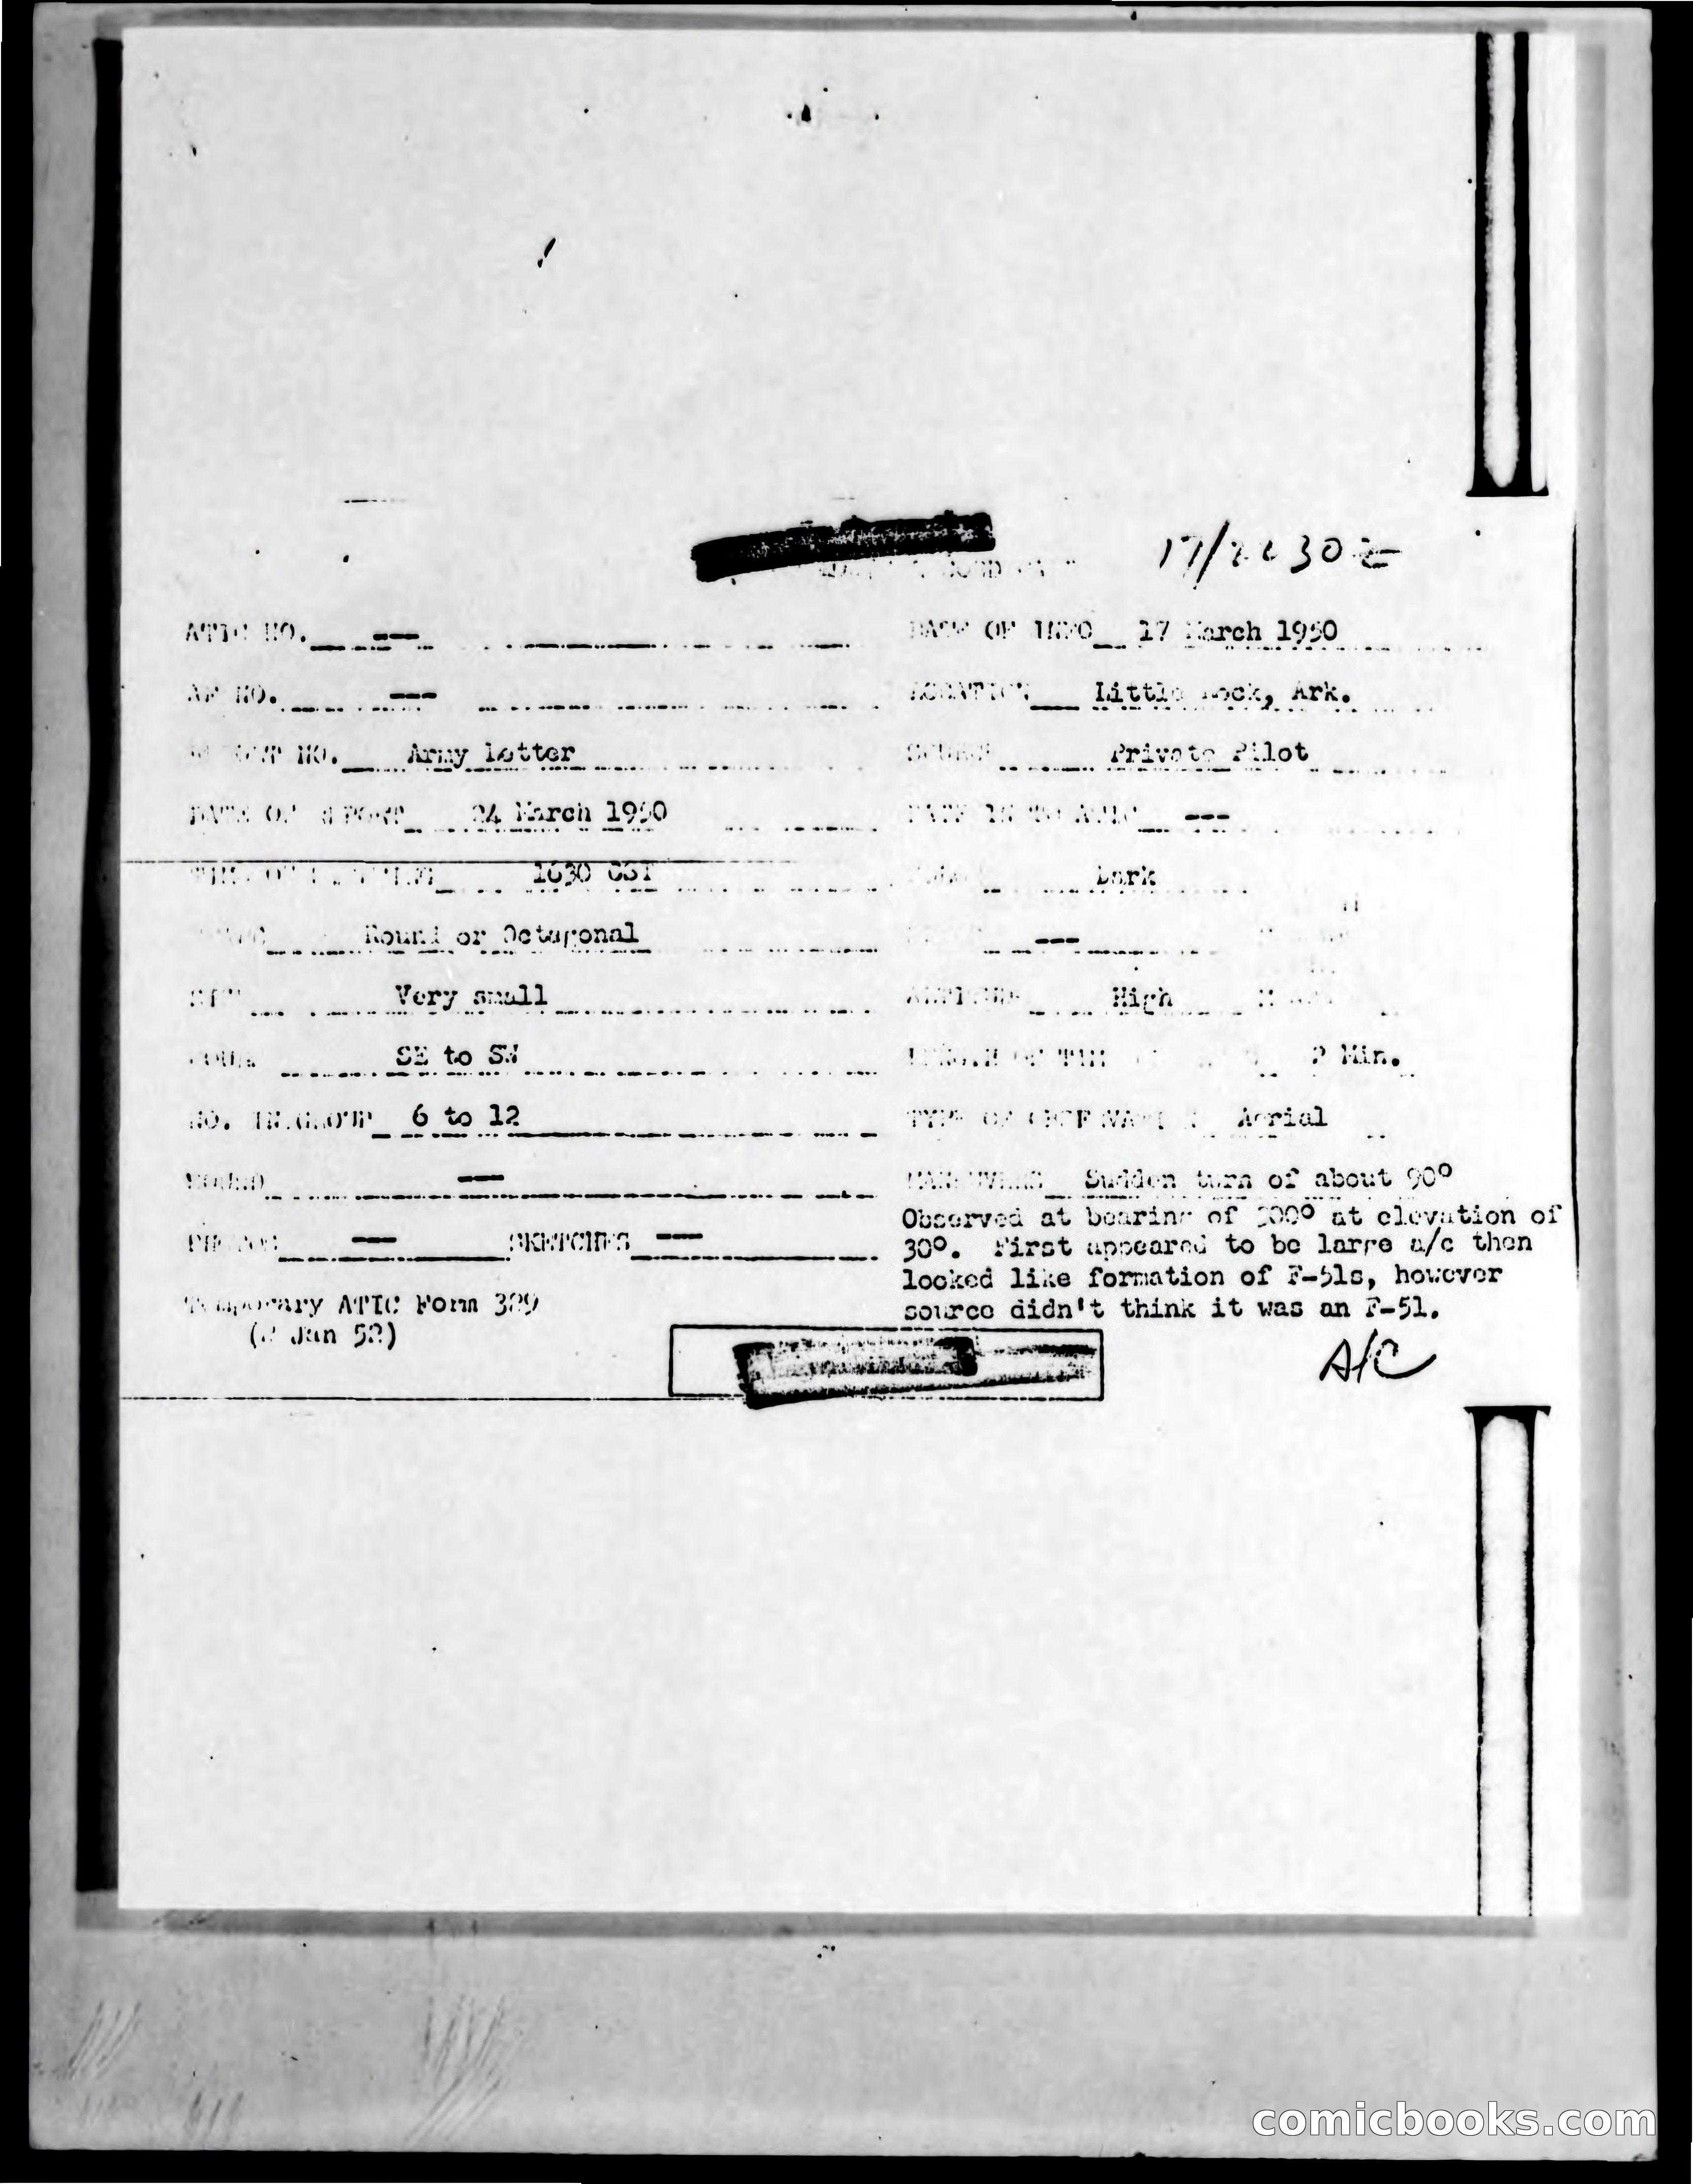 ATIC NO. --- DATE OF INFO 17 March 1950
AF NO. --- LOCATION Little Rock, Ark.
REPORT NO. Army letter SOURCE Private Pilot
DATE OF REPORT 24 March 1950 DATE IN TO ATIC ---
1630 CST Dark
Round or Octagonal ---
SIZE Very small ALTITUDE High
SE to SW LENGTH OF TIME 2 Min.
NO. IN GROUP 6 to 12 TYPE OF OBSERVATION Aerial
SOUND --- MANEUVERS Sudden turn of about 90°
Observed at bearing of 300° at elevation of
PHOTOS --- SKETCHES --- 30°. First appeared to be large a/c then
looked like formation of F-51s, however
Temporary ATIC Form 329 source didn't think it was an F-51.
(2 Jan 52)
A/C
comicbooks.com